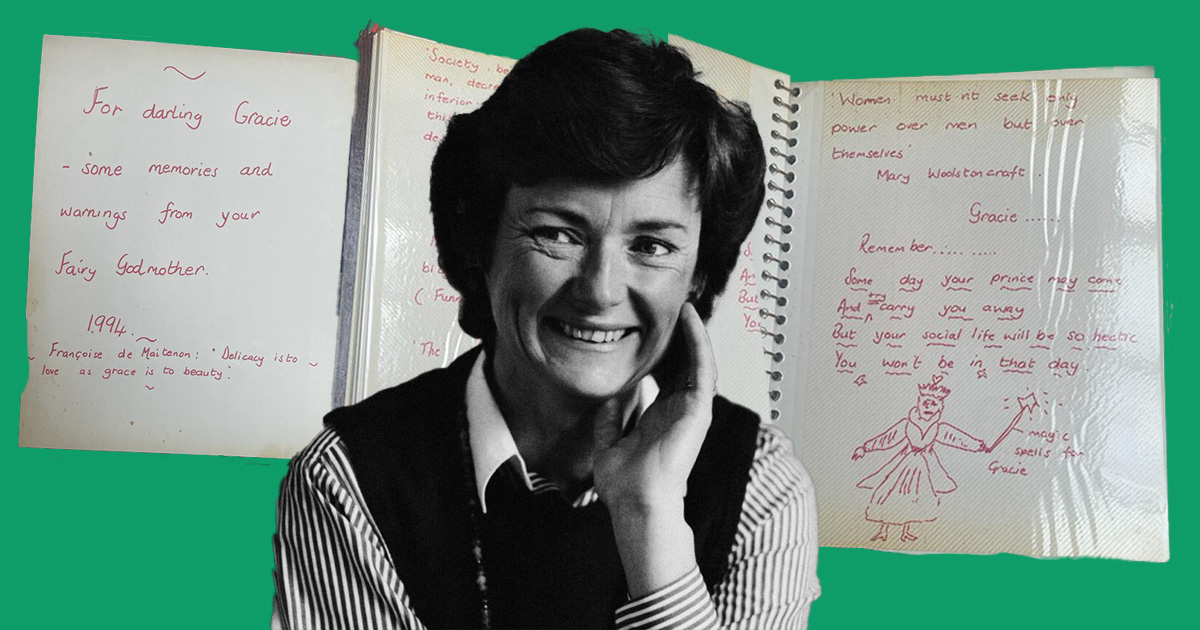 For darling Gracie
- some memories and
warnings from your
Fairy Godmother.
1994.
Françoise de Maitenon: "Delicacy is to
love as grace is to beauty".
'Society, be
man, decre
inferior
thi
de
bi
( Funn
'The
S
An
But
You
'Women must nt seek only
power over men but over
themselves'
Mary Woolstoncraft.
Gracie ......
Remember..........
Some day your prince may come
And try carry you away
But your social life will be so hectic
You won't be in that day.
magic
spells for
Gracie